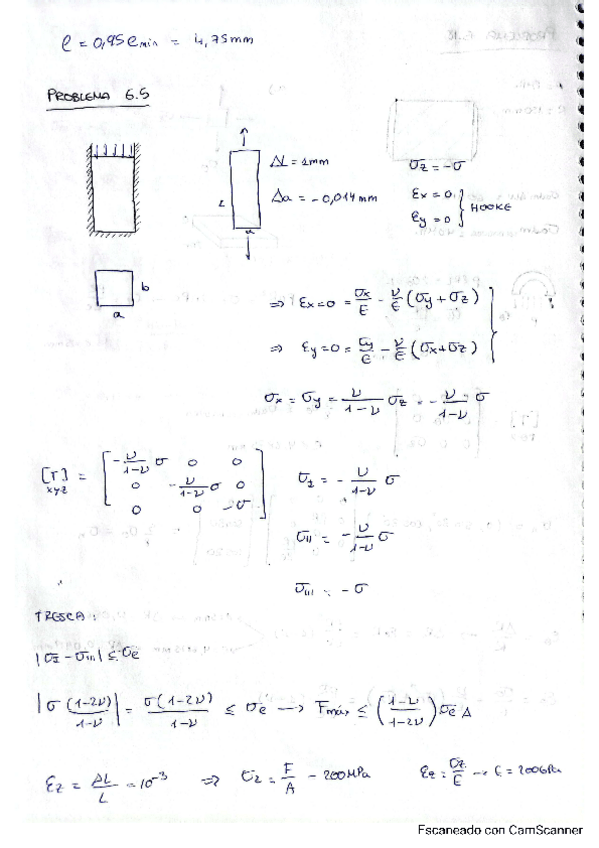 e = 0,95 emin = 4,75mm
PROBLEMA 6.5
ΔL = 1mm
Δa = -0,014mm
L
a
σz = -σ
εx = 0
εy = 0
HOOKE
b
a
⇒ εx = 0 = σx/E - ν/E (σy + σz)
⇒ εy = 0 = σy/E - ν/E (σx + σz)
σx = σy = ν/1-ν σz = - ν/1-ν σ
[T] xyz = [ -ν/1-ν σ 0 0
0 -ν/1-ν σ 0
0 0 -σ ]
σI = - ν/1-ν σ
σII = - ν/1-ν σ
σIII = -σ
TRESCA:
|σI - σIII| ≤ σe
|σ (1-2ν)/1-ν| = σ(1-2ν)/1-ν ≤ σe → Fmáx ≤ (1-ν/1-2ν) σe A
εz = ΔL/L = 10⁻³ ⇒ σz = F/A = 200MPa εz = σz/E → E = 200GPa
Escaneado con CamScanner